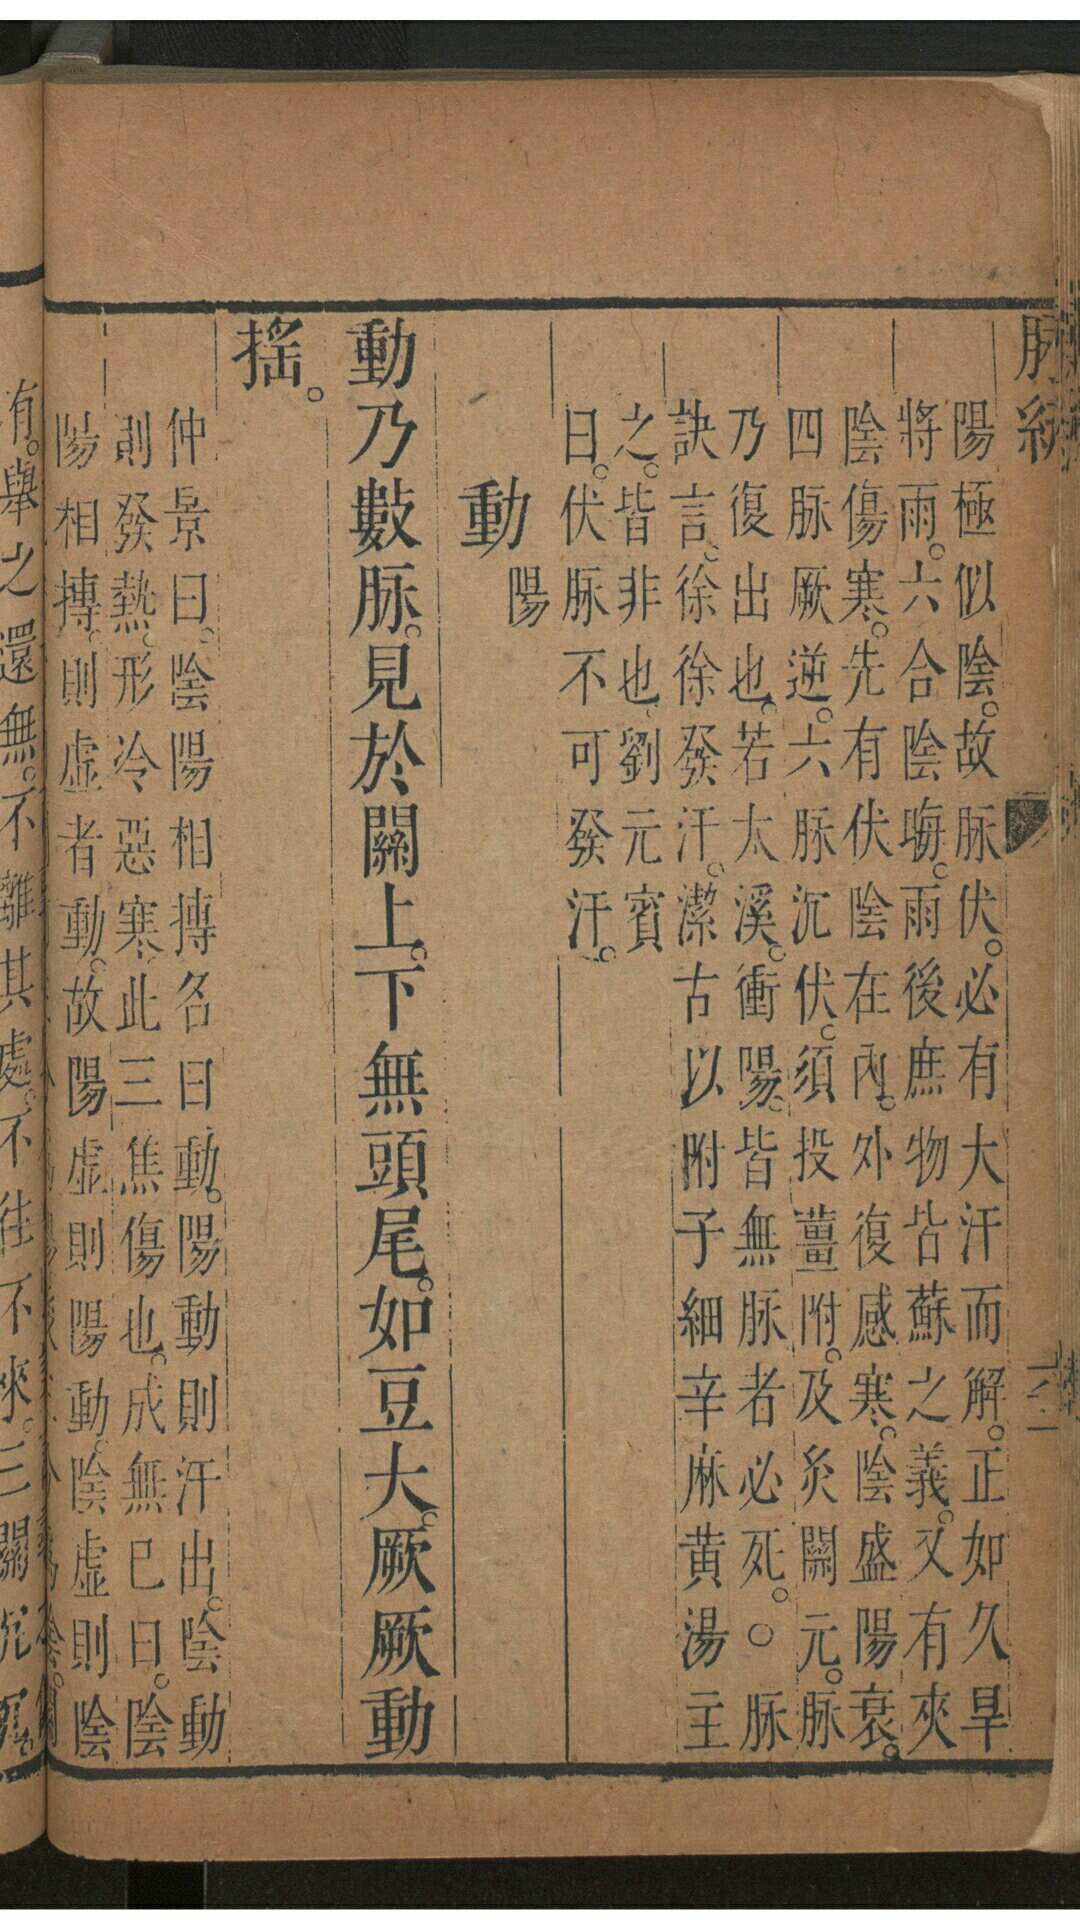 陽極似陰。故脉伏。必有大汗而解。正如久旱
將雨。六合陰晦。雨後庶物皆蘇之義。又有夾
陰傷寒。先有伏陰在內。外復感寒。陰盛陽衰。
四脉厥逆。六脉沉伏。須投薑附。及灸關元。脉
乃復出也。若太溪。衝陽。皆無脉者必死。○脉
訣言。徐徐發汗。潔古以附子細辛麻黃湯主
之。皆非也。劉元賓
曰。伏脉不可發汗。
動陽
動乃數脉。見於關上。下無頭尾。如豆大。厥厥動
搖。
仲景曰。陰陽相搏名曰動。陽動則汗出。陰動
則發熱。形冷惡寒。此三焦傷也。成無已曰。陰
陽相搏。則虛者動。故陽虛則陽動。陰虛則陰
有。舉之還無。不離其處。不往不來。三關